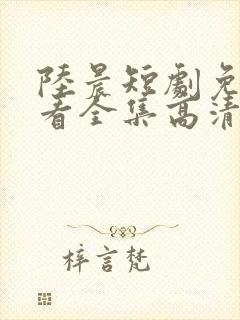 陸晨短劇免
看全集高清
梓言梵